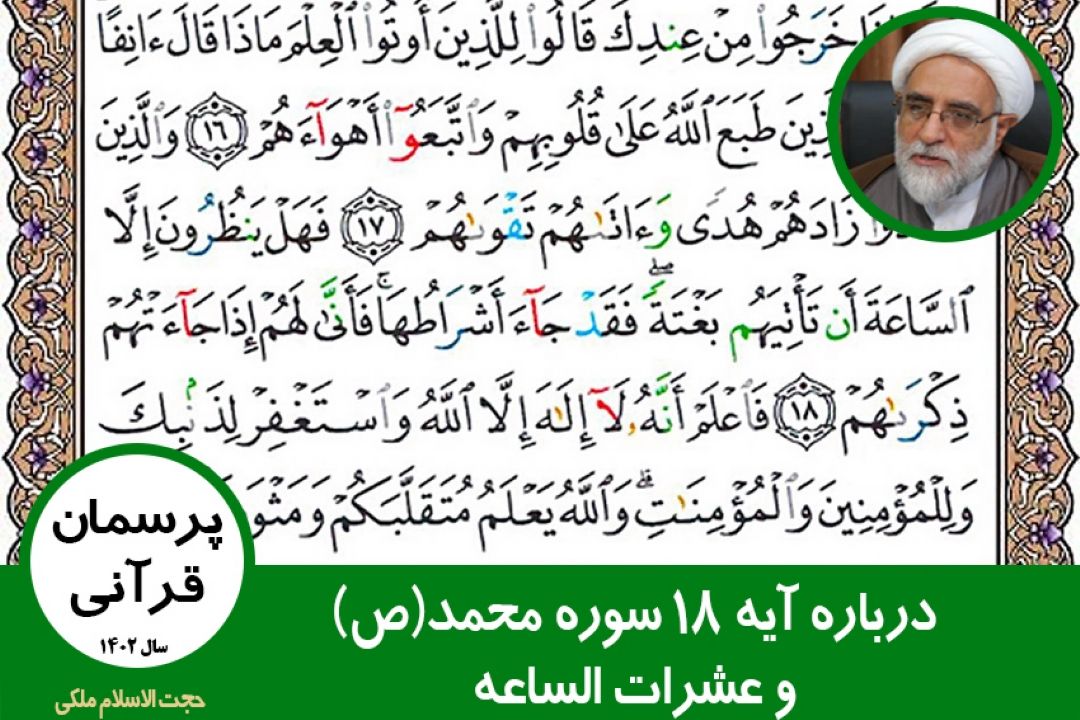 خَرَجُوا۟ مِنْ عِندِكَ قَالُوا۟ لِلَّذِينَ أُوتُوا۟ ٱلْعِلْمَ مَاذَا قَالَ ءَانِفًا
طَبَعَ ٱللَّهُ عَلَىٰ قُلُوبِهِمْ وَٱتَّبَعُوٓا۟ أَهْوَآءَهُمْ ۝١٦ وَٱلَّذِينَ
زَادَهُمْ هُدًى وَءَاتَىٰهُمْ تَقْوَىٰهُمْ ۝١٧ فَهَلْ يَنظُرُونَ إِلَّا
ٱلسَّاعَةَ أَن تَأْتِيَهُم بَغْتَةً ۖ فَقَدْ جَآءَ أَشْرَاطُهَا ۚ فَأَنَّىٰ لَهُمْ إِذَا جَآءَتْهُمْ
ذِكْرَىٰهُمْ ۝١٨ فَٱعْلَمْ أَنَّهُۥ لَآ إِلَٰهَ إِلَّا ٱللَّهُ وَٱسْتَغْفِرْ لِذَنۢبِكَ
وَلِلْمُؤْمِنِينَ وَٱلْمُؤْمِنَٰتِ ۗ وَٱللَّهُ يَعْلَمُ مُتَقَلَّبَكُمْ
پرسمان
قرآنی
سال ۱۴۰۲
حجت الاسلام ملکی
درباره آیه ۱۸ سوره محمد(ص)
و عشرات الساعه